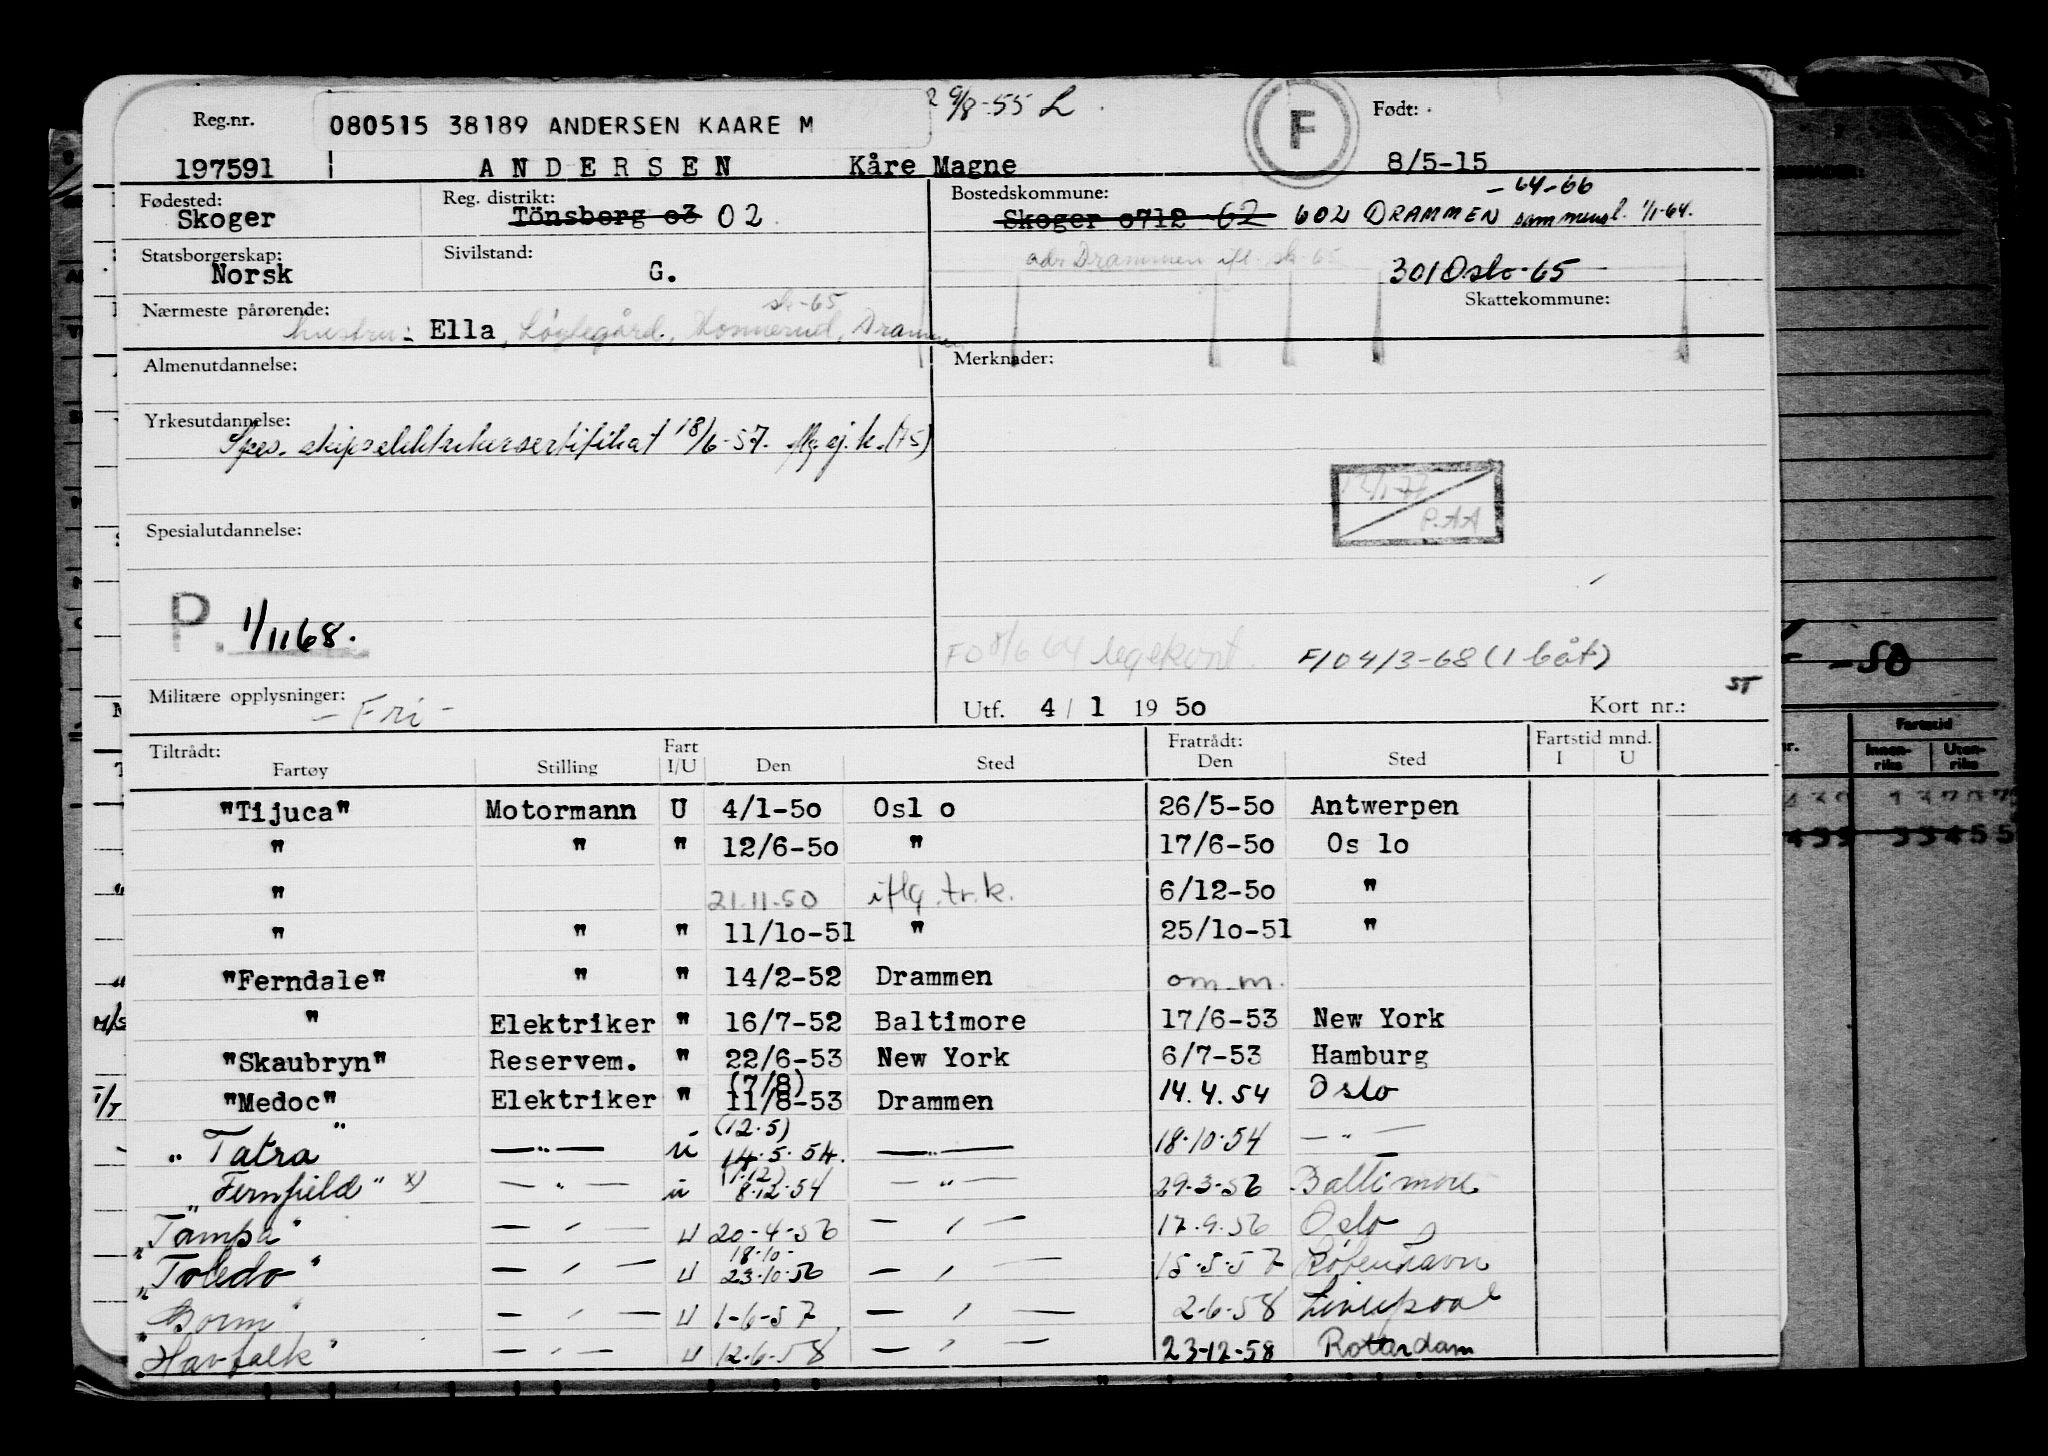 9/8-55 L
Reg.nr. 080515 38189 ANDERSEN KAARE M F Født:
197591 ANDERSEN Kåre Magne 8/5-15
Fødested: Skoger Reg. distrikt: Tönsberg o3 02 Bostedskommune: Skoger o712 -62 602 DRAMMEN sammensl. 1/1-64. -64-66
Statsborgerskap: Norsk Sivilstand: G. adr Drammen ifl. sk-65 301 Oslo-65
Skattekommune:
Nærmeste pårørende: hustru: Ella, Konnerud, Drammen sk-65
Almenutdannelse: Merknader:
Yrkesutdannelse: Spes. skipselektrikersertifikat 18/6-57. iflg. gj.k. (75)
P.AA
Spesialutdannelse:
P. 1/11 68.
FO 8/6 64 legekont. F/O 4/3-68 (1 båt)
Militære opplysninger: - Fri - Utf. 4/1 1950 Kort nr.: ST
-50
Tiltrådt: Fartøy Stilling Fart I/U Den Sted Fratrådt: Den Sted Fartstid mnd. I U
Fartstid Innen-riks Uten-riks
"Tijuca" Motormann U 4/1-50 Osl o 26/5-50 Antwerpen
" " " 12/6-50 " 17/6-50 Os lo
" 21.11.50 iflg. tr.k. 6/12-50 "
" " " 11/1o-51 " 25/1o-51 "
"Ferndale" " " 14/2-52 Drammen om.m.
M/S " Elektriker " 16/7-52 Baltimore 17/6-53 New York
"Skaubryn" Reservem. " 22/6-53 New York 6/7-53 Hamburg
T/T "Medoc" Elektriker " (7/8) 11/8-53 Drammen 14.4.54 Oslo
"Tatra" —"— u (12.5) 14.5.54. —"— 18.10.54 —"—
"Fernfield" x) —"— u (1.12) 8.12.54 —"— 29.3.56 Baltimore
"Tampa" —"— u 20-4-56 —"— 17.9.56 Oslo
"Toledo" —"— u 18.10- 23.10.56 —"— 15.5.57 København
"Borm" —"— u 1-6-57 —"— 2-6-58 Liverpool
"Havfalk" —"— u 12.6.58 —"— 23-12-58 Rotterdam